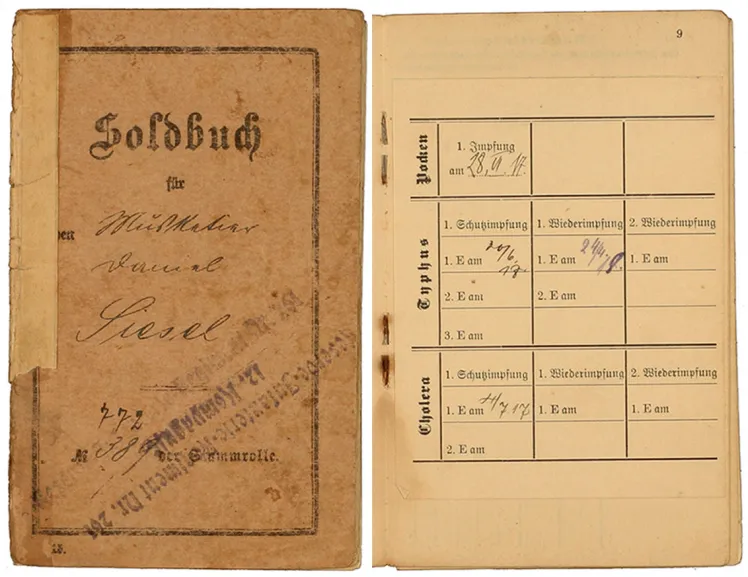 Soldbuch
für
den Musketier
Daniel
Siesel
772
№ 389 der Stammrolle.
Reserve-Infanterie-Regiment Nr. 261
12. Kompagnie
15.
9
Pocken
1. Impfung
am 28. VI. 17.
Typhus
1. Schutzimpfung 1. Wiederimpfung 2. Wiederimpfung
1. E am 1. E am 1. E am
2. E am 2. E am
3. E am
Cholera
1. Schutzimpfung 1. Wiederimpfung 2. Wiederimpfung
1. E am 7 17 1. E am 1. E am
2. E am